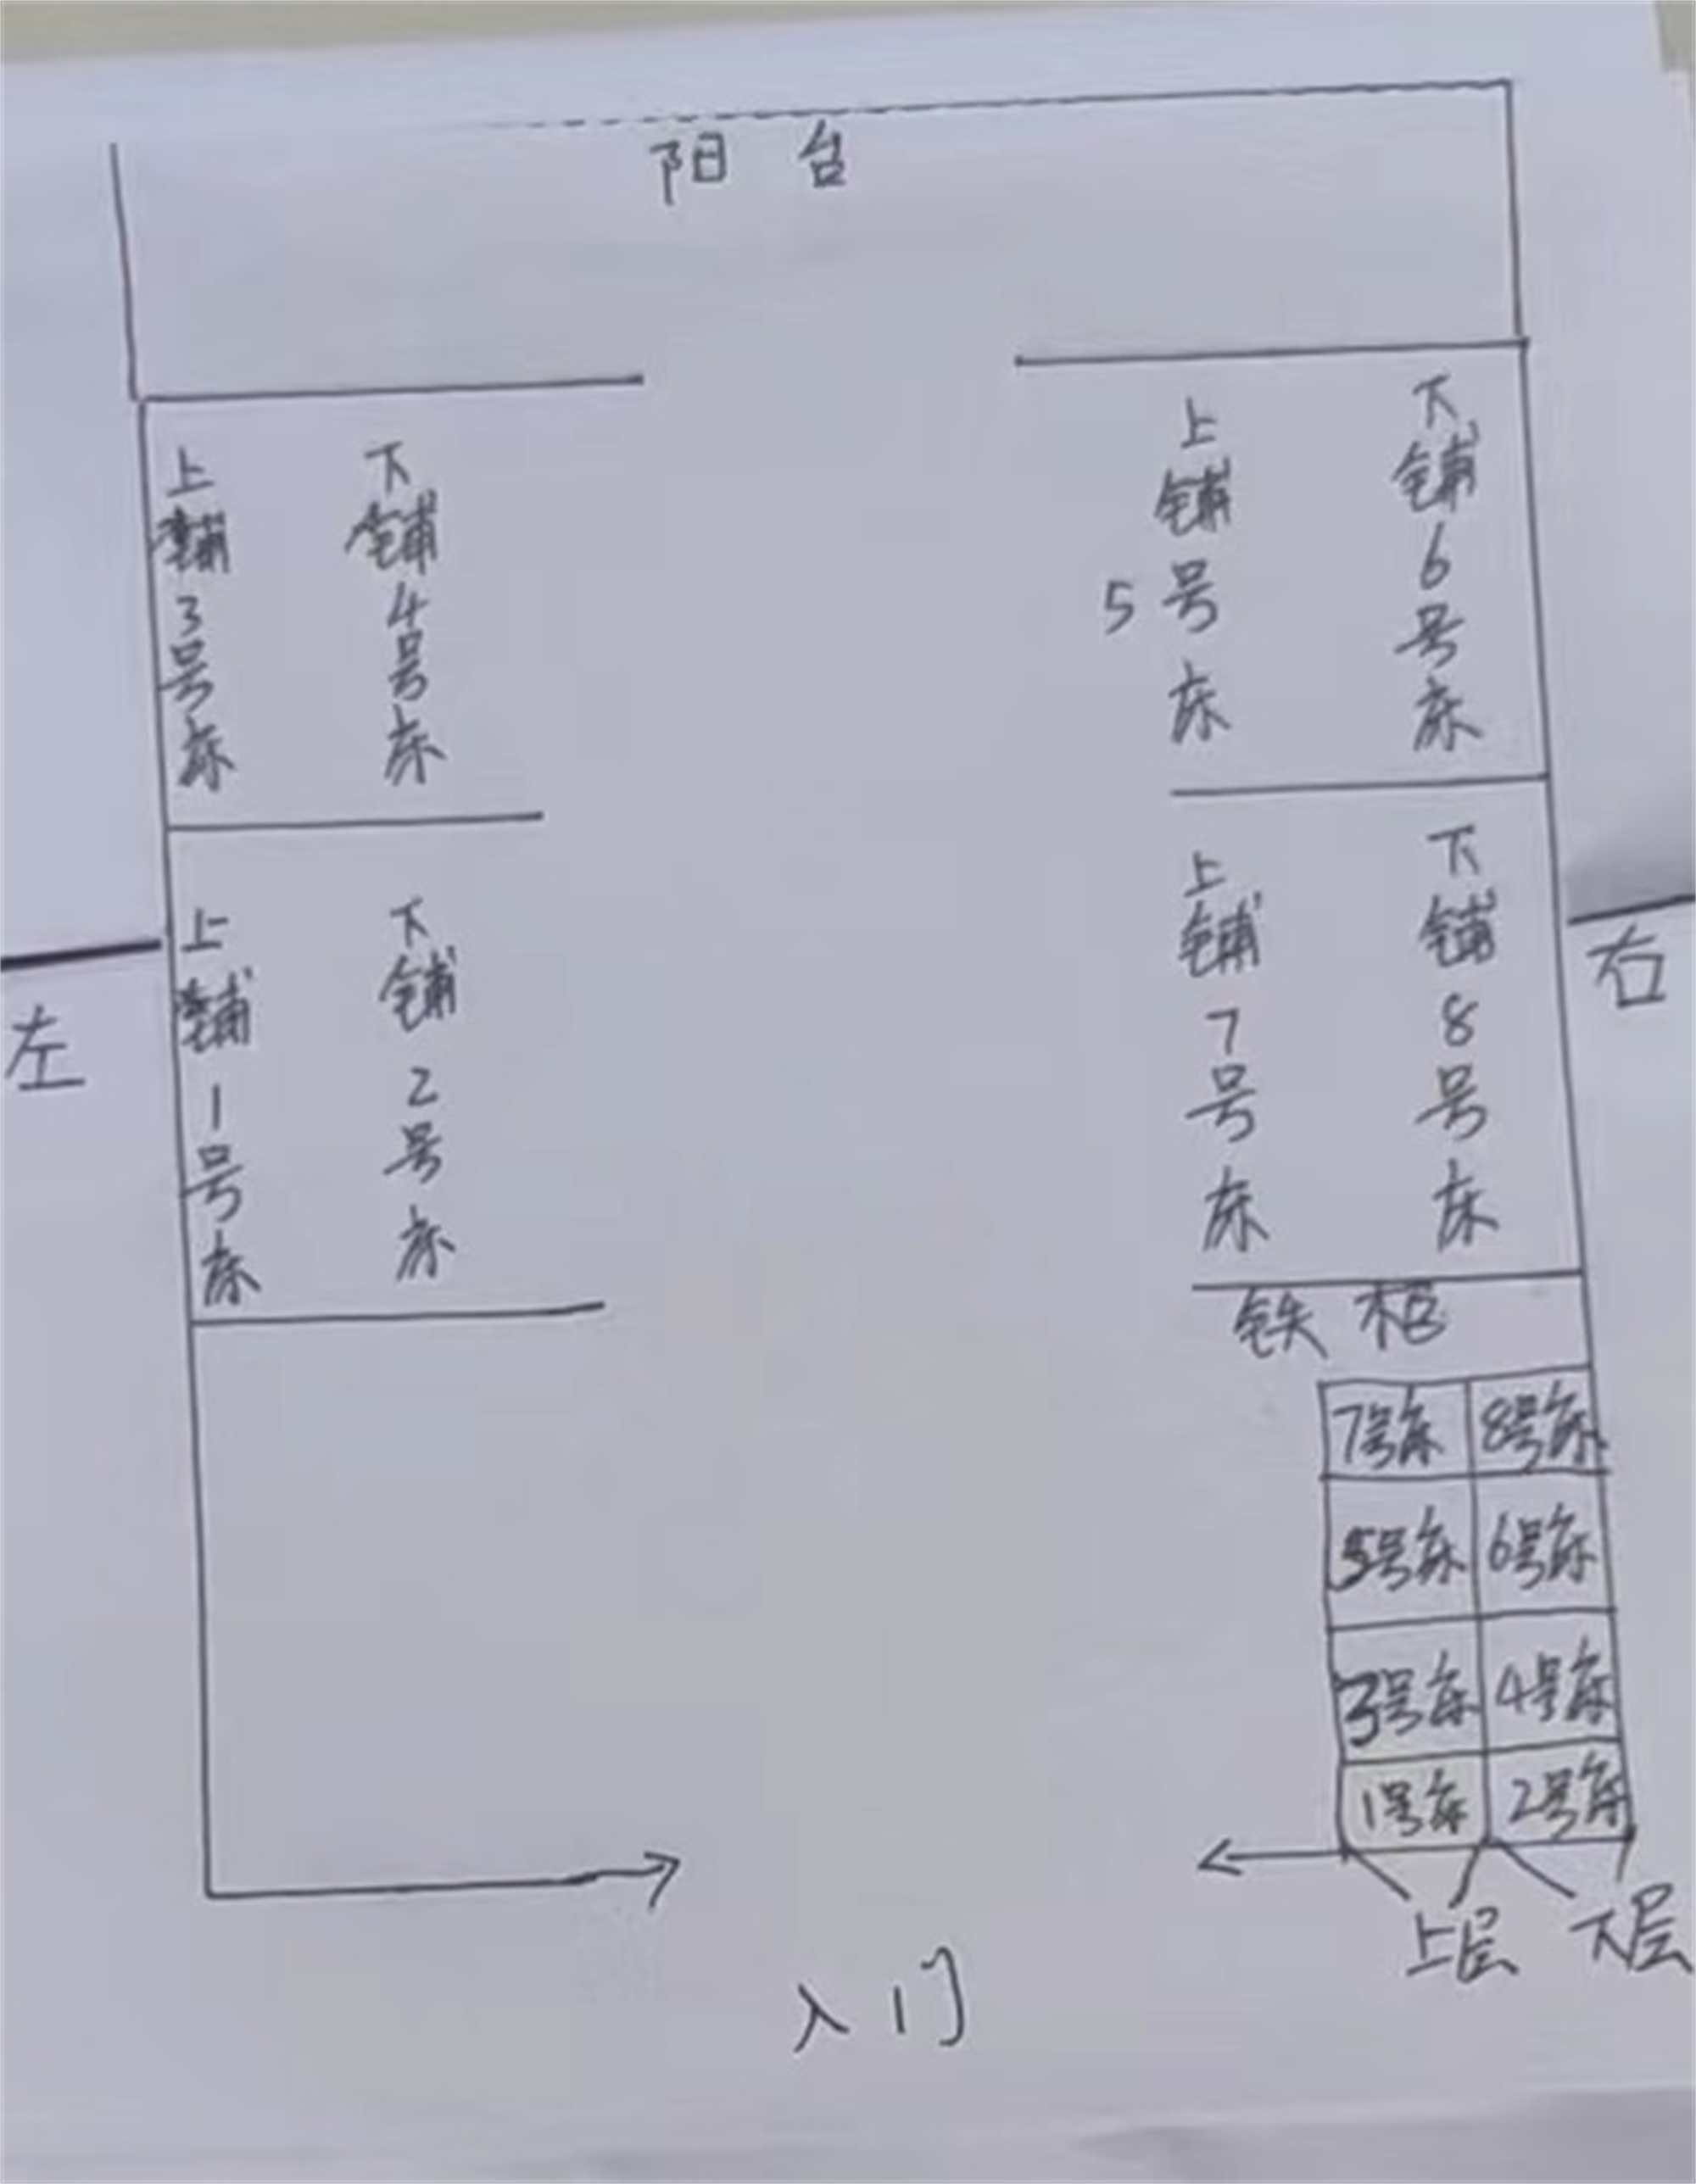 阳台
上铺3号床
下铺4号床
上铺5号床
下铺6号床
左
上铺1号床
下铺2号床
上铺7号床
下铺8号床
右
铁柜
7号床 8号床
5号床 6号床
3号床 4号床
1号床 2号床
上层 下层
入门